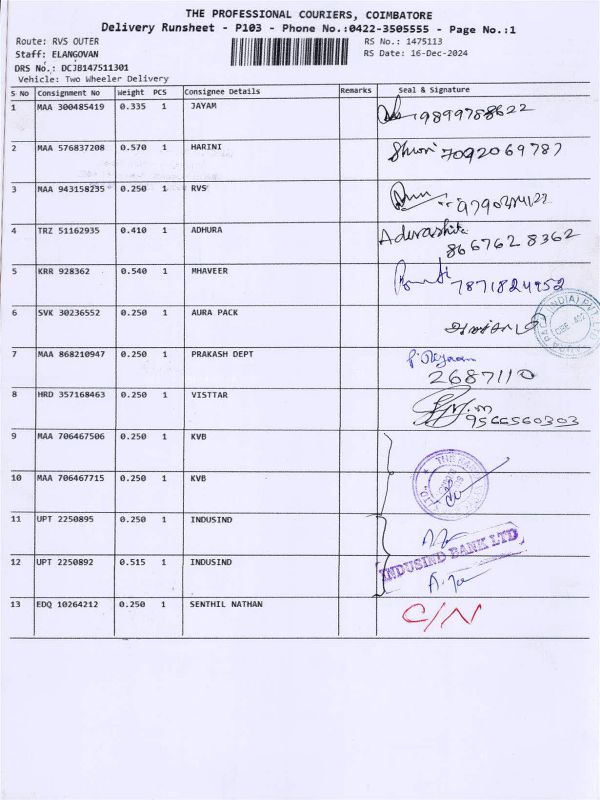 THE PROFESSIONAL COURIERS, COIMBATORE
Delivery Runsheet - P103 - Phone No.:0422-3505555 - Page No.:1
Route: RVS OUTER
RS No.: 1475113
Staff: ELANGOVAN
RS Date: 16-Dec-2024
DRS No.: DCJB147511301
Vehicle: Two Wheeler Delivery
S No Consignment No Weight PCS Consignee Details Remarks Seal & Signature
1 MAA 300485419 0.335 1 JAYAM 9899788622
2 MAA 576837208 0.570 1 HARINI 7092069787
3 MAA 943158235 0.250 1 RVS
4 TRZ 51162935 0.410 1 ADHURA
8667628362
5 KRR 928362 0.540 1 MHAVEER 7871824952
6 SVK 30236552 0.250 1 AURA PACK
7 MAA 868210947 0.250 1 PRAKASH DEPT
2687110
8 HRD 357168463 0.250 1 VISTTAR
9566560303
9 MAA 706467506 0.250 1 KVB
10 MAA 706467715 0.250 1 KVB
11 UPT 2250895 0.250 1 INDUSIND
INDUSIND BANK LTD
12 UPT 2250892 0.515 1 INDUSIND
13 EDQ 10264212 0.250 1 SENTHIL NATHAN C/N